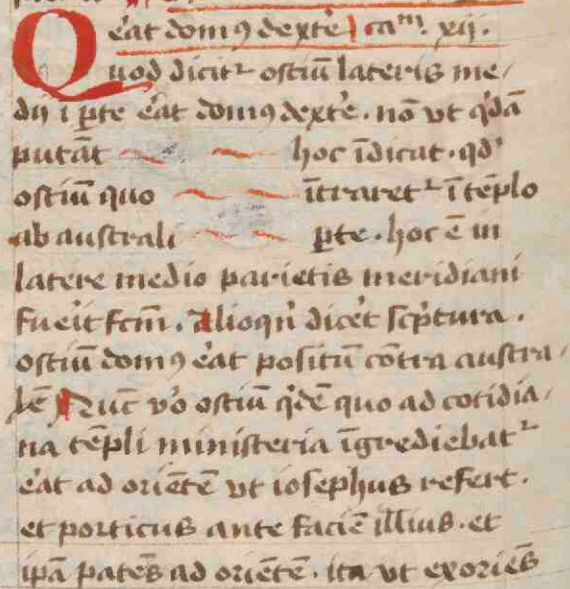 ēat domꝯ dexte᷒ caᵐ. xij.
Quod dicit᷑ ostiū lateris me/
dij i ꝑte ēat domꝯ dexte᷒. nō vt qͥdā
putāt hoc īdicat. ꝙ
ostiū quo ītraret᷑ ī tēplo
ab australi ꝑte. hoc ē in
latere medio parietis meridiani
fue᷒it fcm̄. Alioqn̄ dice᷒t sc̄ptura.
ostiū domꝯ ēat positū cōtra austra/
lē Nūc v̊o ostiū qͥdē quo ad cotidia/
na tēpli ministeria īgrediebat᷑
ēat ad oriētē vt iosephus refert.
et porticus ante faciē illius. et
ip̄a patēs ad oriētē. ita vt exoriēs